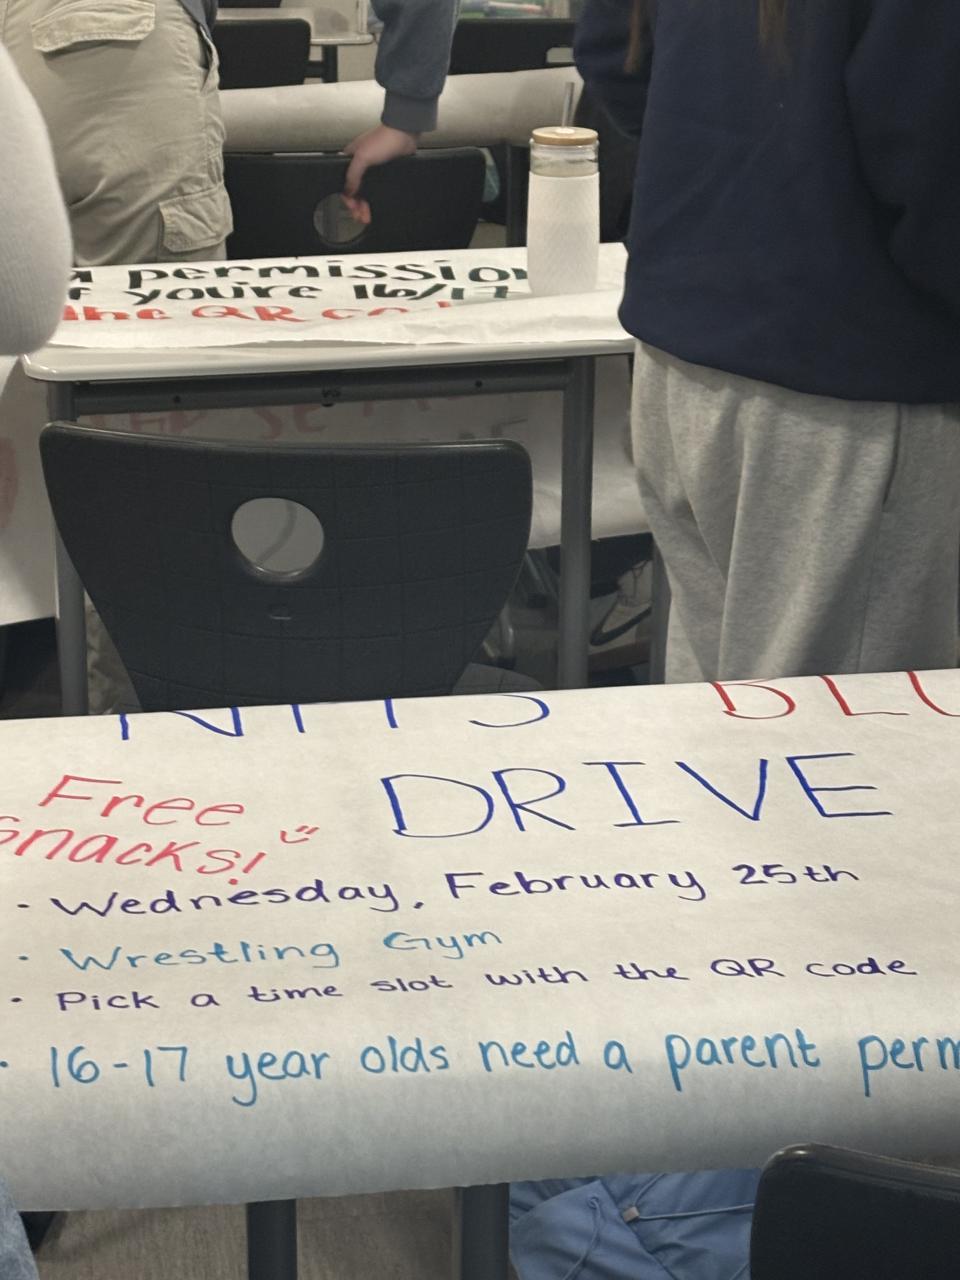 permission
if you're 16/17
the QR
DRIVE
Free
Snacks!
· Wednesday, February 25th
· Wrestling Gym
· Pick a time slot with the QR code
· 16-17 year olds need a parent perm